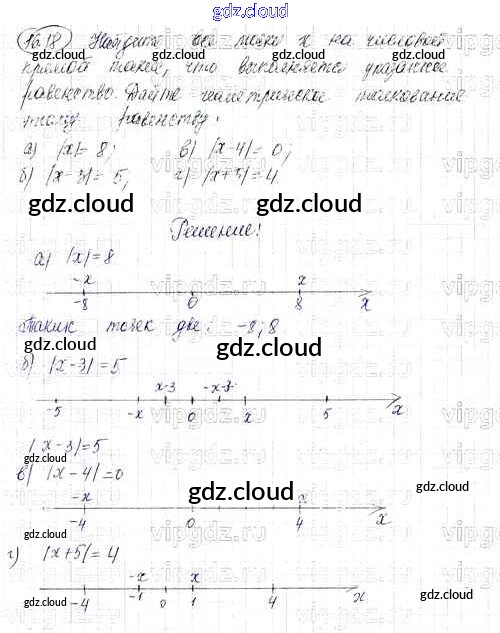 gdz.cloud
16.18 Найдите все точки x на числовой
прямой такой, что выполняется указанное
равенство. Дайте геометрическое толкование
этому равенству:
а) |x|= 8; в) |x-4|= 0;
б) |x-3|= 5; г) |x+5|= 4.
gdz.cloud gdz.cloud
Решение!
а) |x|=8
-x x
-8 0 8 x
Таких точек две: -8; 8.
gdz.cloud
б) |x-3|=5
x-3 -x-3
-5 -x 0 x 5 x
|x-3|=5
в) |x-4|=0
gdz.cloud
-x x
-4 0 4 x
г) |x+5|=4
-x x
-4 -1 0 1 4 x
gdz.cloud gdz.cloud